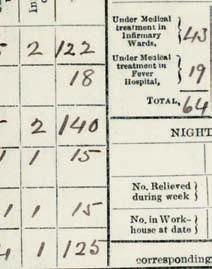 In
5 2 122
18
5 2 140
1 1 15
1 1 15
4 1 125
Under Medical
treatment in
Infirmary
Wards, 43
Under Medical
treatment in
Fever
Hospital, 19
TOTAL, 64
NIGHT
No. Relieved
during week
No. in Work-
house at date
corresponding